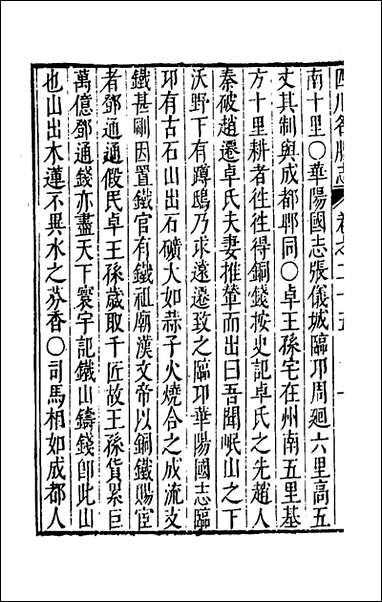 四川名勝志 卷之二十五
南十里〇華陽國志張儀城臨邛周廻六里高五
丈其制與成都郫同〇卓王孫宅在州南五里基
方十里耕者徃徃得銅錢按史記卓氏之先趙人
秦破趙遷卓氏夫妻推輦而出曰吾聞岷山之下
沃野下有蹲鴟乃求遠遷致之臨邛華陽國志臨
邛有古石山出石礦大如蒜子火燒合之成流支
鐵甚剛因置鐵官有鐵祖廟漢文帝以銅鐵賜宦
者鄧通通假民卓王孫歲取千匠故王孫貨累巨
萬億鄧通錢亦盡天下寰宇記鐵山鑄錢卽此山
也山出木蓮不異水之芬香〇司馬相如成都人